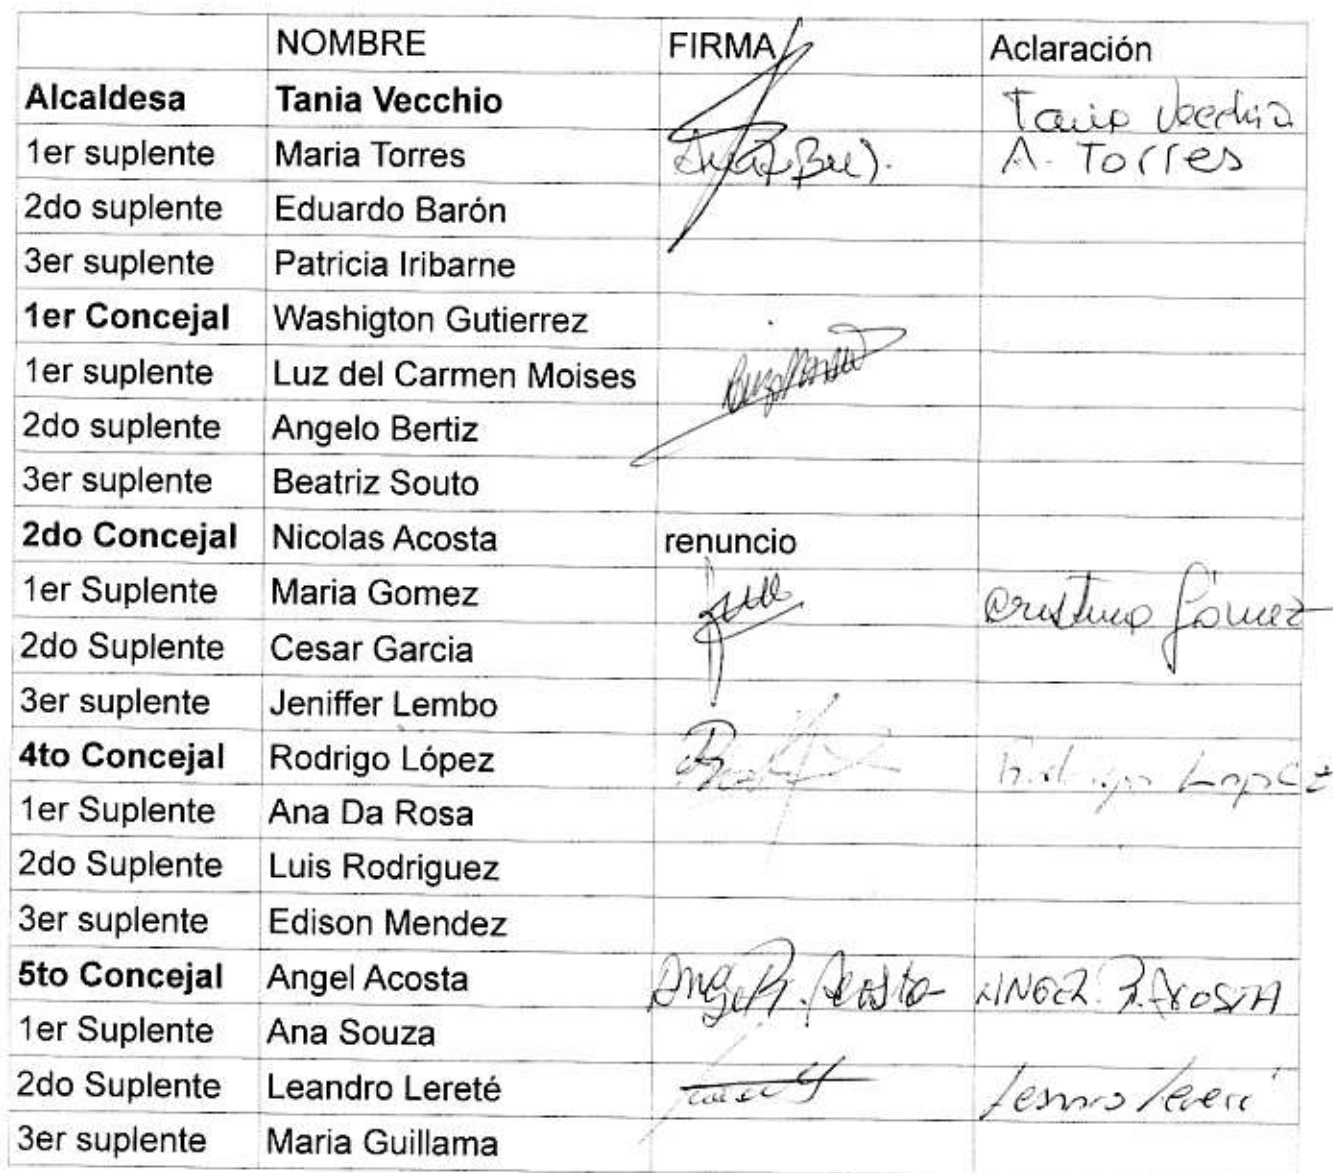 NOMBRE FIRMA Aclaración
Alcaldesa Tania Vecchio Tania Vecchio
1er suplente Maria Torres A. Torres
2do suplente Eduardo Barón
3er suplente Patricia Iribarne
1er Concejal Washigton Gutierrez
1er suplente Luz del Carmen Moises
2do suplente Angelo Bertiz
3er suplente Beatriz Souto
2do Concejal Nicolas Acosta renuncio
1er Suplente Maria Gomez Cristina Gómez
2do Suplente Cesar Garcia
3er suplente Jeniffer Lembo
4to Concejal Rodrigo López Rodrigo Lopez
1er Suplente Ana Da Rosa
2do Suplente Luis Rodriguez
3er suplente Edison Mendez
5to Concejal Angel Acosta Angel R. Acosta ANGEL R. ACOSTA
1er Suplente Ana Souza
2do Suplente Leandro Lereté
3er suplente Maria Guillama